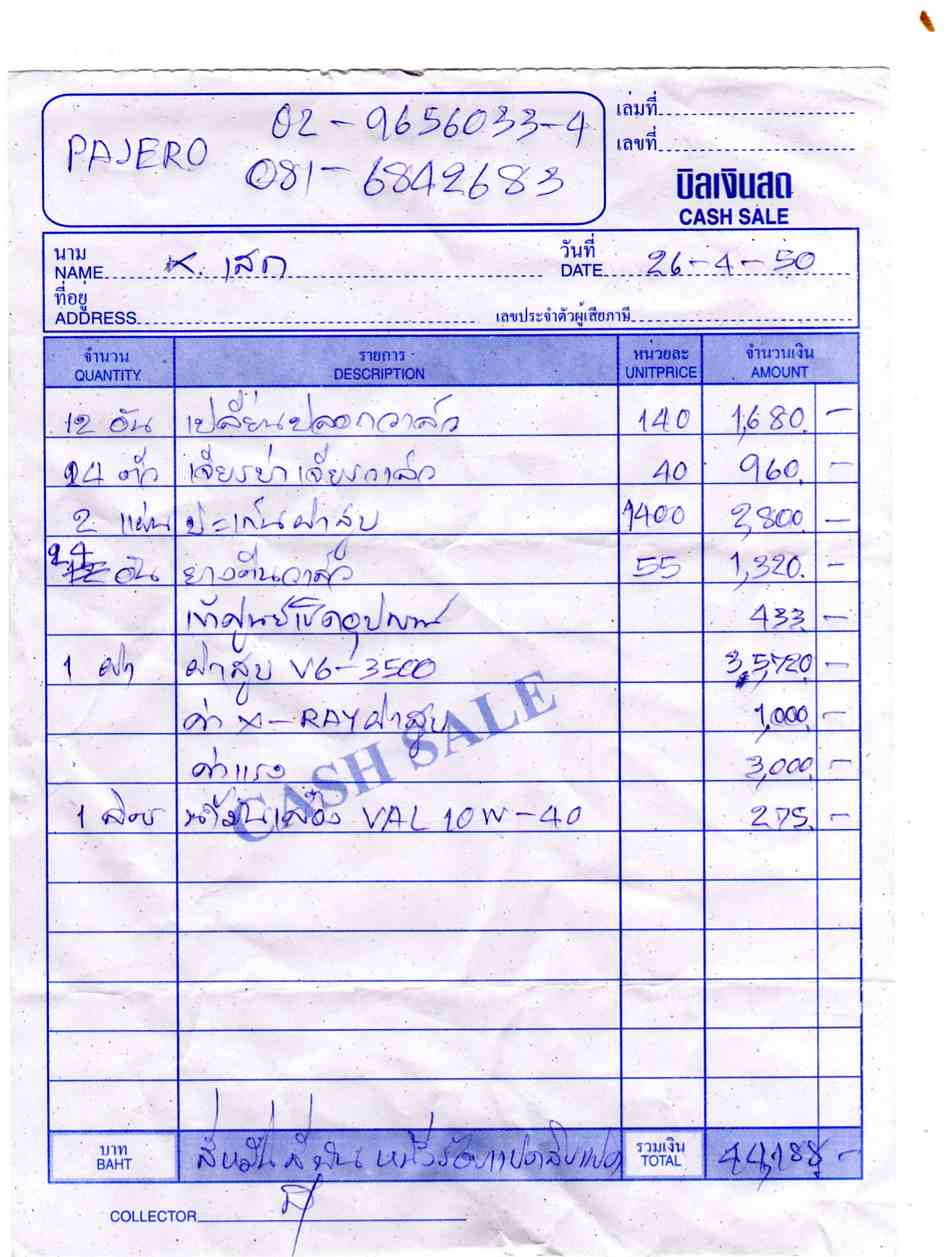 PAJERO 02-9656033-4
081-6842683
เล่มที่
เลขที่
บิลเงินสด
CASH SALE
นาม
NAME K. เสก
วันที่
DATE 26-4-50
ที่อยู่
ADDRESS เลขประจำตัวผู้เสียภาษี
จำนวน รายการ หน่วยละ จำนวนเงิน
QUANTITY DESCRIPTION UNITPRICE AMOUNT
12 อัน เปลี่ยนปลอกวาล์ว 140 1,680.-
24 ตัว เจียรบ่าเจียรวาล์ว 40 960.-
2 แผ่น ปะเก็นฝาสูบ 1400 2,800.-
24 อัน ยางตีนวาล์ว 55 1,320.-
433 -
1 ฝา ฝาสูบ V6-3500 3,5720 -
ค่า X-RAY ฝาสูบ 1,000.-
ค่าแรง 3,000.-
1 ลิตร น้ำมันเครื่อง VAL 10W-40 275.-
CASH SALE
บาท
BAHT สี่หมื่นสี่พันหนึ่งร้อยแปดสิบแปด
รวมเงิน
TOTAL 44,188 -
COLLECTOR